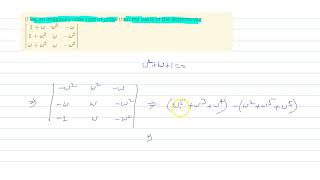 If ω is an imaginary cube root of unity, then the value of the determinant
| 1 + ω   ω²   -ω |
| 1 + ω²   ω   -ω² |
| ω + ω²   ω   -ω² |
ω²+ω+1=0
⇒ | -ω²   ω²   -ω |
| -ω   ω   -ω² |
| -1   ω   -ω² |
⇒ (   + ω³ + ω⁴) - (ω² + ω⁵ + ω⁵)